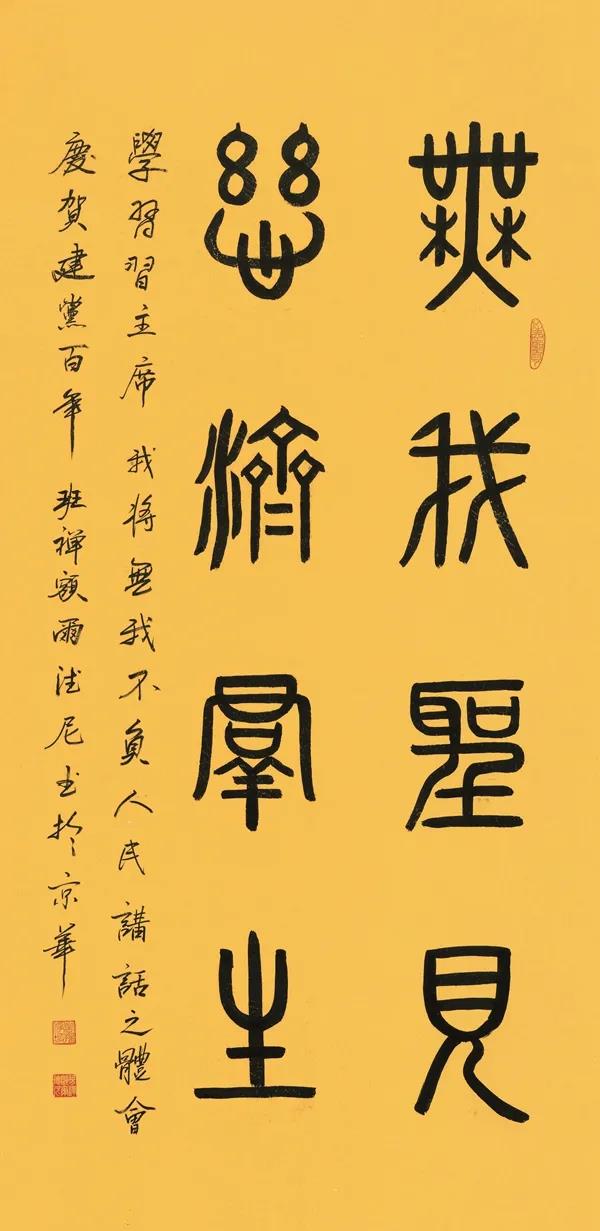 無我聖見
慈濟羣生
學習習主席 我將無我不負人民講話之體會
慶賀建黨百年 班禪額爾德尼書於京華